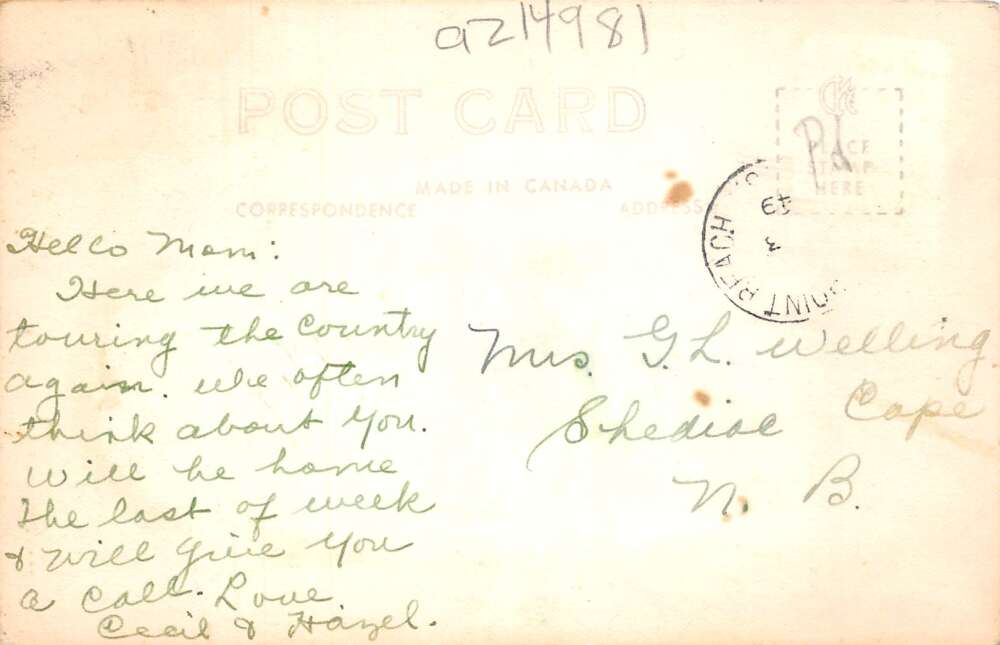 az14981
POST CARD
MADE IN CANADA
CORRESPONDENCE
ADDRESS
PLACE
STAMP
HERE
Pd
POINT BEACH
3
49
Hello Mom:
Here we are
touring the country
again. We often
think about you.
Will be home
the last of week
& will give you
a call. Love
Cecil & Hazel.
Mrs. G. L. Welling.
Shediac Cape
N. B.